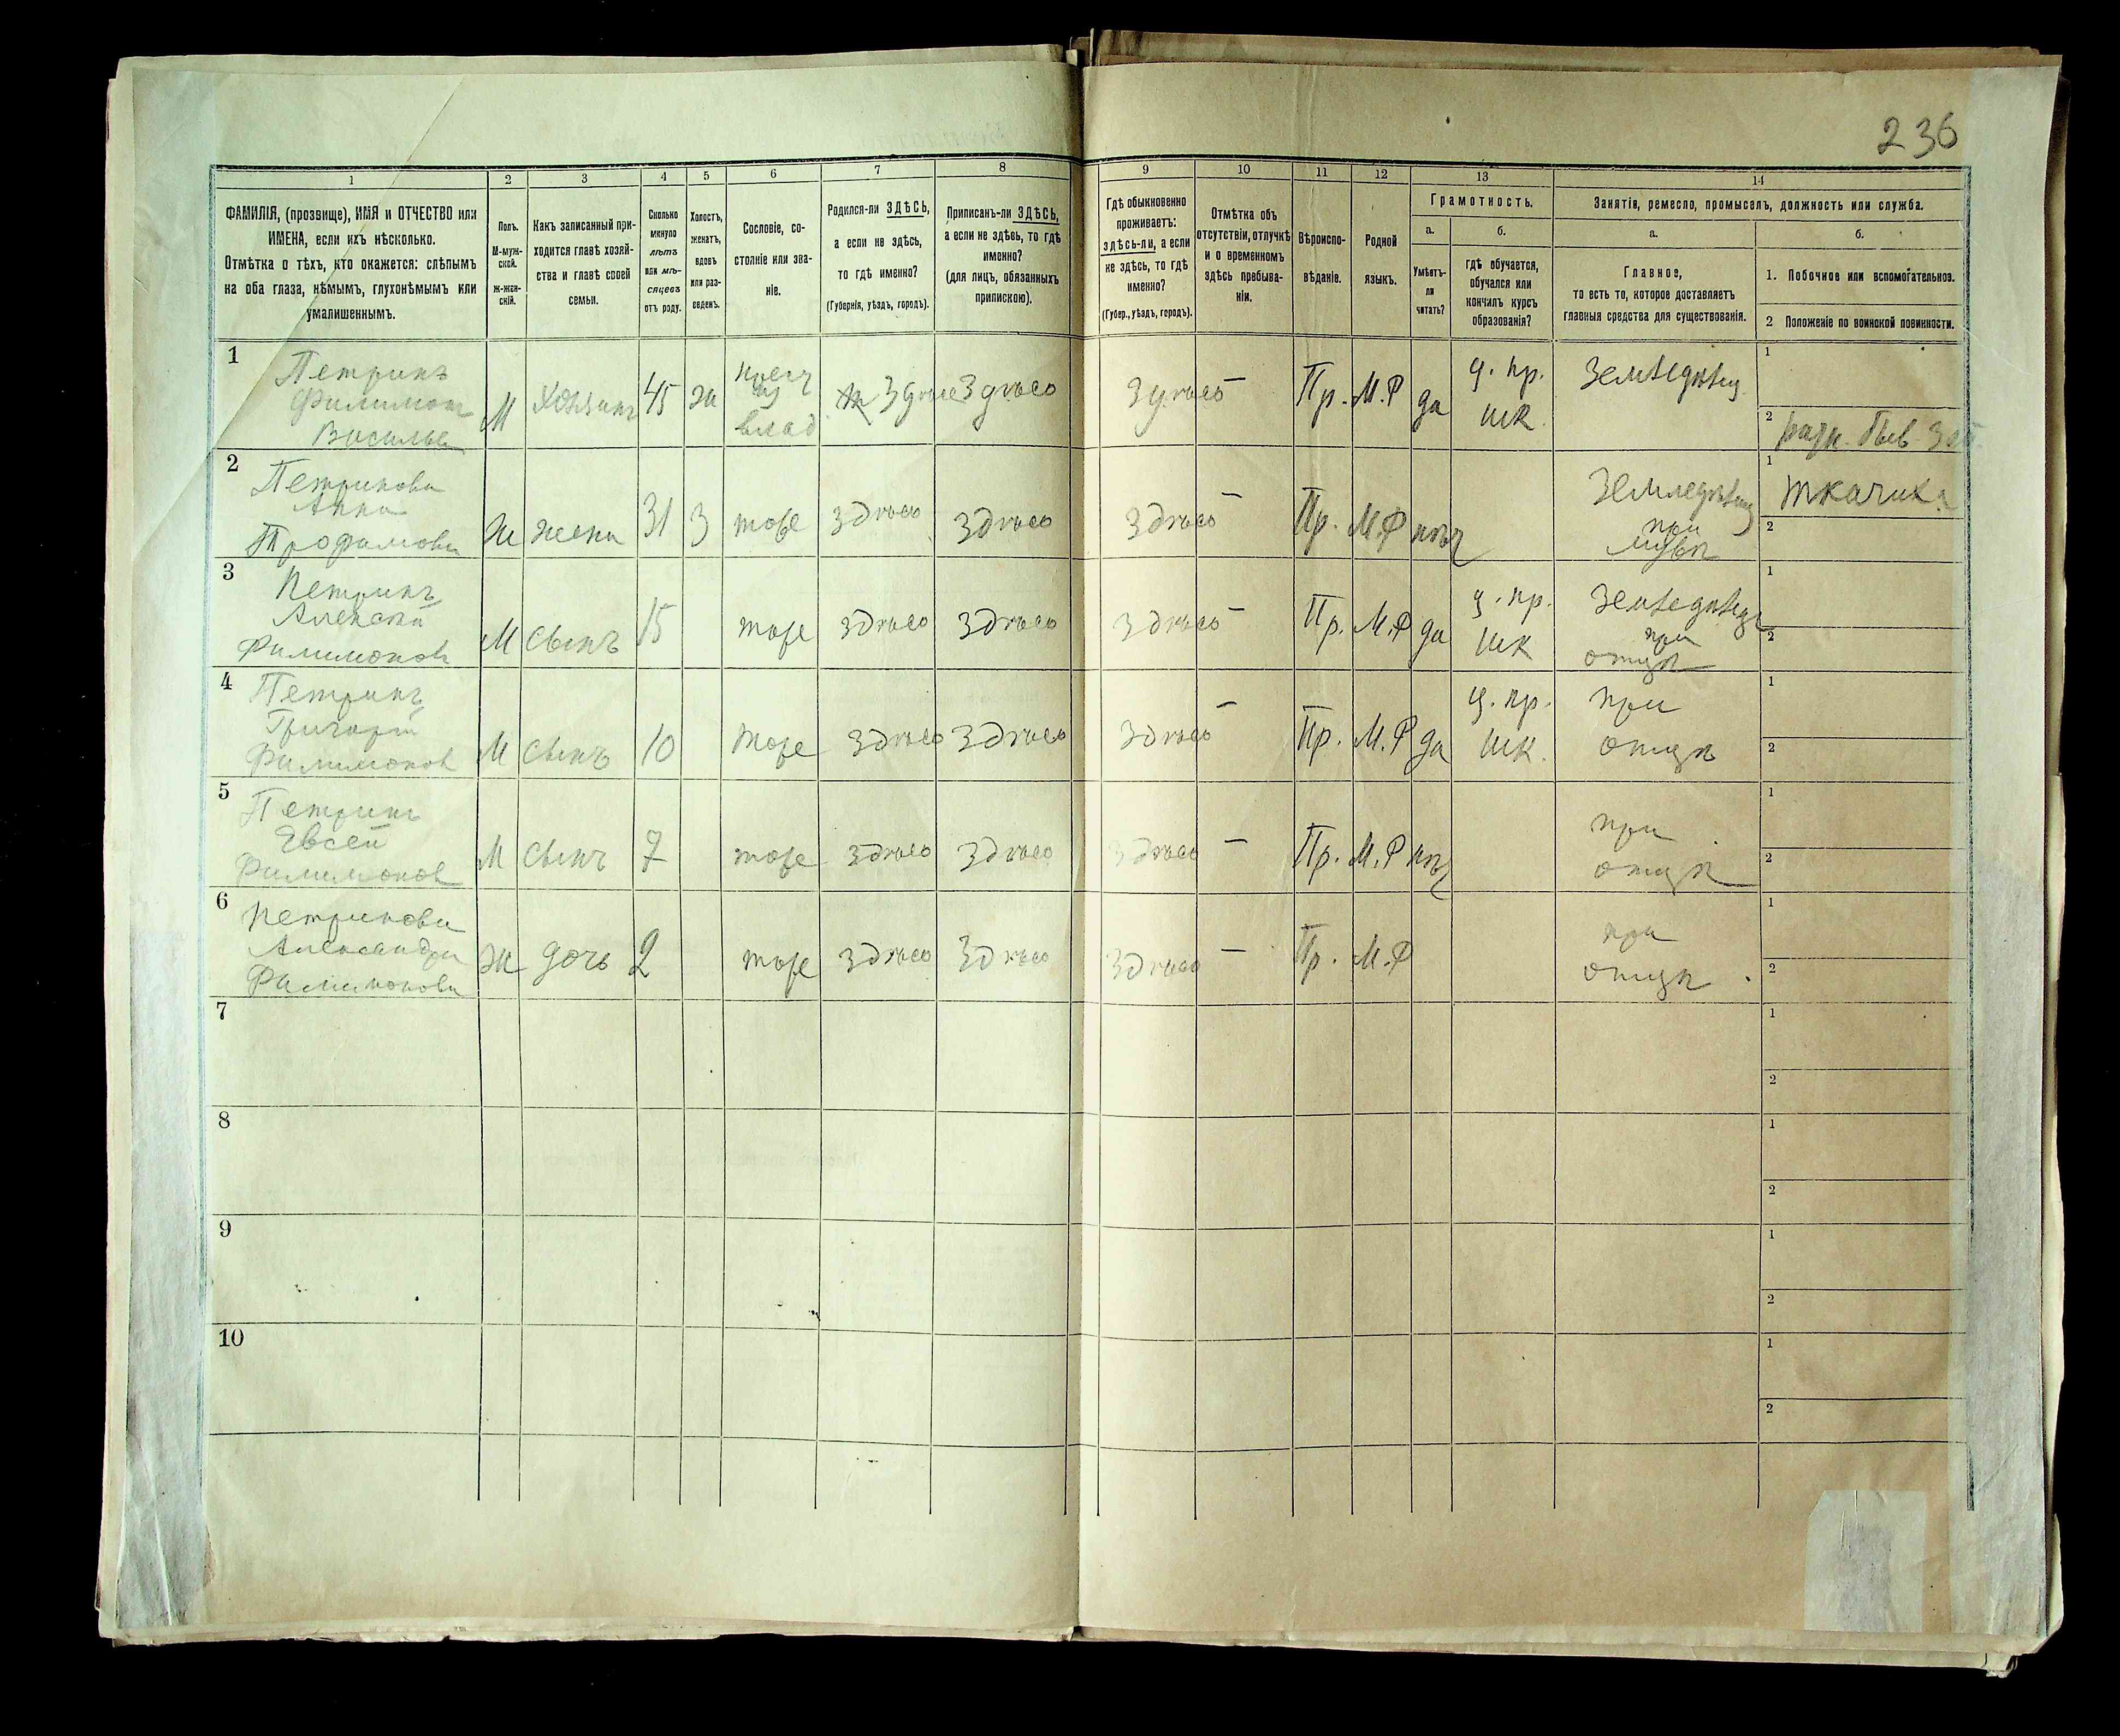 236
1 2 3 4 5 6 7 8 9 10 11 12 13 14
ФАМИЛІЯ, (прозвище), ИМЯ и ОТЧЕСТВО или
ИМЕНА, если ихъ нѣсколько.
Отмѣтка о тѣхъ, кто окажется: слѣпымъ
на оба глаза, нѣмымъ, глухонѣмымъ или
умалишеннымъ.
Полъ.
М-муж-
ской.
ж-жен-
скій.
Какъ записанный при-
ходится главѣ хозяй-
ства и главѣ своей
семьи.
Сколько
минуло
лѣтъ
или мѣ-
сяцевъ
отъ роду.
Холостъ,
женатъ,
вдовъ
или раз-
веденъ.
Сословіе, со-
стояніе или зва-
ніе.
Родился-ли ЗДѢСЬ,
а если не здѣсь,
то гдѣ именно?
(Губернія, уѣздъ, городъ).
Приписанъ-ли ЗДѢСЬ,
а если не здѣсь, то гдѣ
именно?
(для лицъ, обязанныхъ
припискою).
Гдѣ обыкновенно
проживаетъ:
здѣсь-ли, а если
не здѣсь, то гдѣ
именно?
(Губер., уѣздъ, городъ).
Отмѣтка объ
отсутствіи, отлучкѣ
и о временномъ
здѣсь пребыва-
ніи.
Вѣроиспо-
вѣданіе.
Родной
языкъ.
Грамотность.
а.
Умѣетъ-
ли
читать?
б.
гдѣ обучается,
обучался или
кончилъ курсъ
образованія?
Занятія, ремесло, промыселъ, должность или служба.
а.
Главное,
то есть то, которое доставляетъ
главныя средства для существованія.
б.
1. Побочное или вспомогательное.
2 Положеніе по воинской повинности.
1
Петринъ
Филимонъ
Васильев
М
Хозяинъ
45
ж
крест
из
влад
Здѣсь
Здѣсь
Здѣсь
—
Пр.
М.Р
да
ц. пр.
шк.
Земледѣлец
1
2
2
Петринова
Анна
Трофимова
Ж
жена
31
З
тоже
Здѣсь
Здѣсь
Здѣсь
—
Пр.
М.Р
нѣт
Земледѣлец
при
мужѣ
1
Ткачиха
2
3
Петринъ
Алексѣй
Филимонов
М
сынъ
15
тоже
Здѣсь
Здѣсь
Здѣсь
—
Пр.
М.Р
да
ц. пр.
шк
Земледѣлец
при
отцѣ
1
2
4
Петринъ
Григорій
Филимонов
М
сынъ
10
тоже
Здѣсь
Здѣсь
Здѣсь
—
Пр.
М.Р
да
ц. пр.
шк.
при
отцѣ
1
2
5
Петринъ
Евсей
Филимонов
М
сынъ
7
тоже
Здѣсь
Здѣсь
Здѣсь
—
Пр.
М.Р
нѣт
при
отцѣ
1
2
6
Петринова
Александра
Филимонова
Ж
дочь
2
тоже
Здѣсь
Здѣсь
Здѣсь
—
Пр.
М.Р
при
отцѣ
1
2
7
1
2
8
1
2
9
1
2
10
1
2